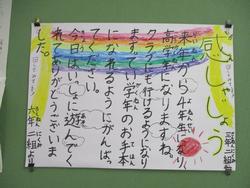 感しゃじょう
三年二組
来年から4年生になり
高学年になりますね。
クラブも行けるようになり
ます。てい学年のお手本
になれるようにがんばっ
てください。
今日はいっしょに遊んでく
れてありがとうございま
した。
六年二組より